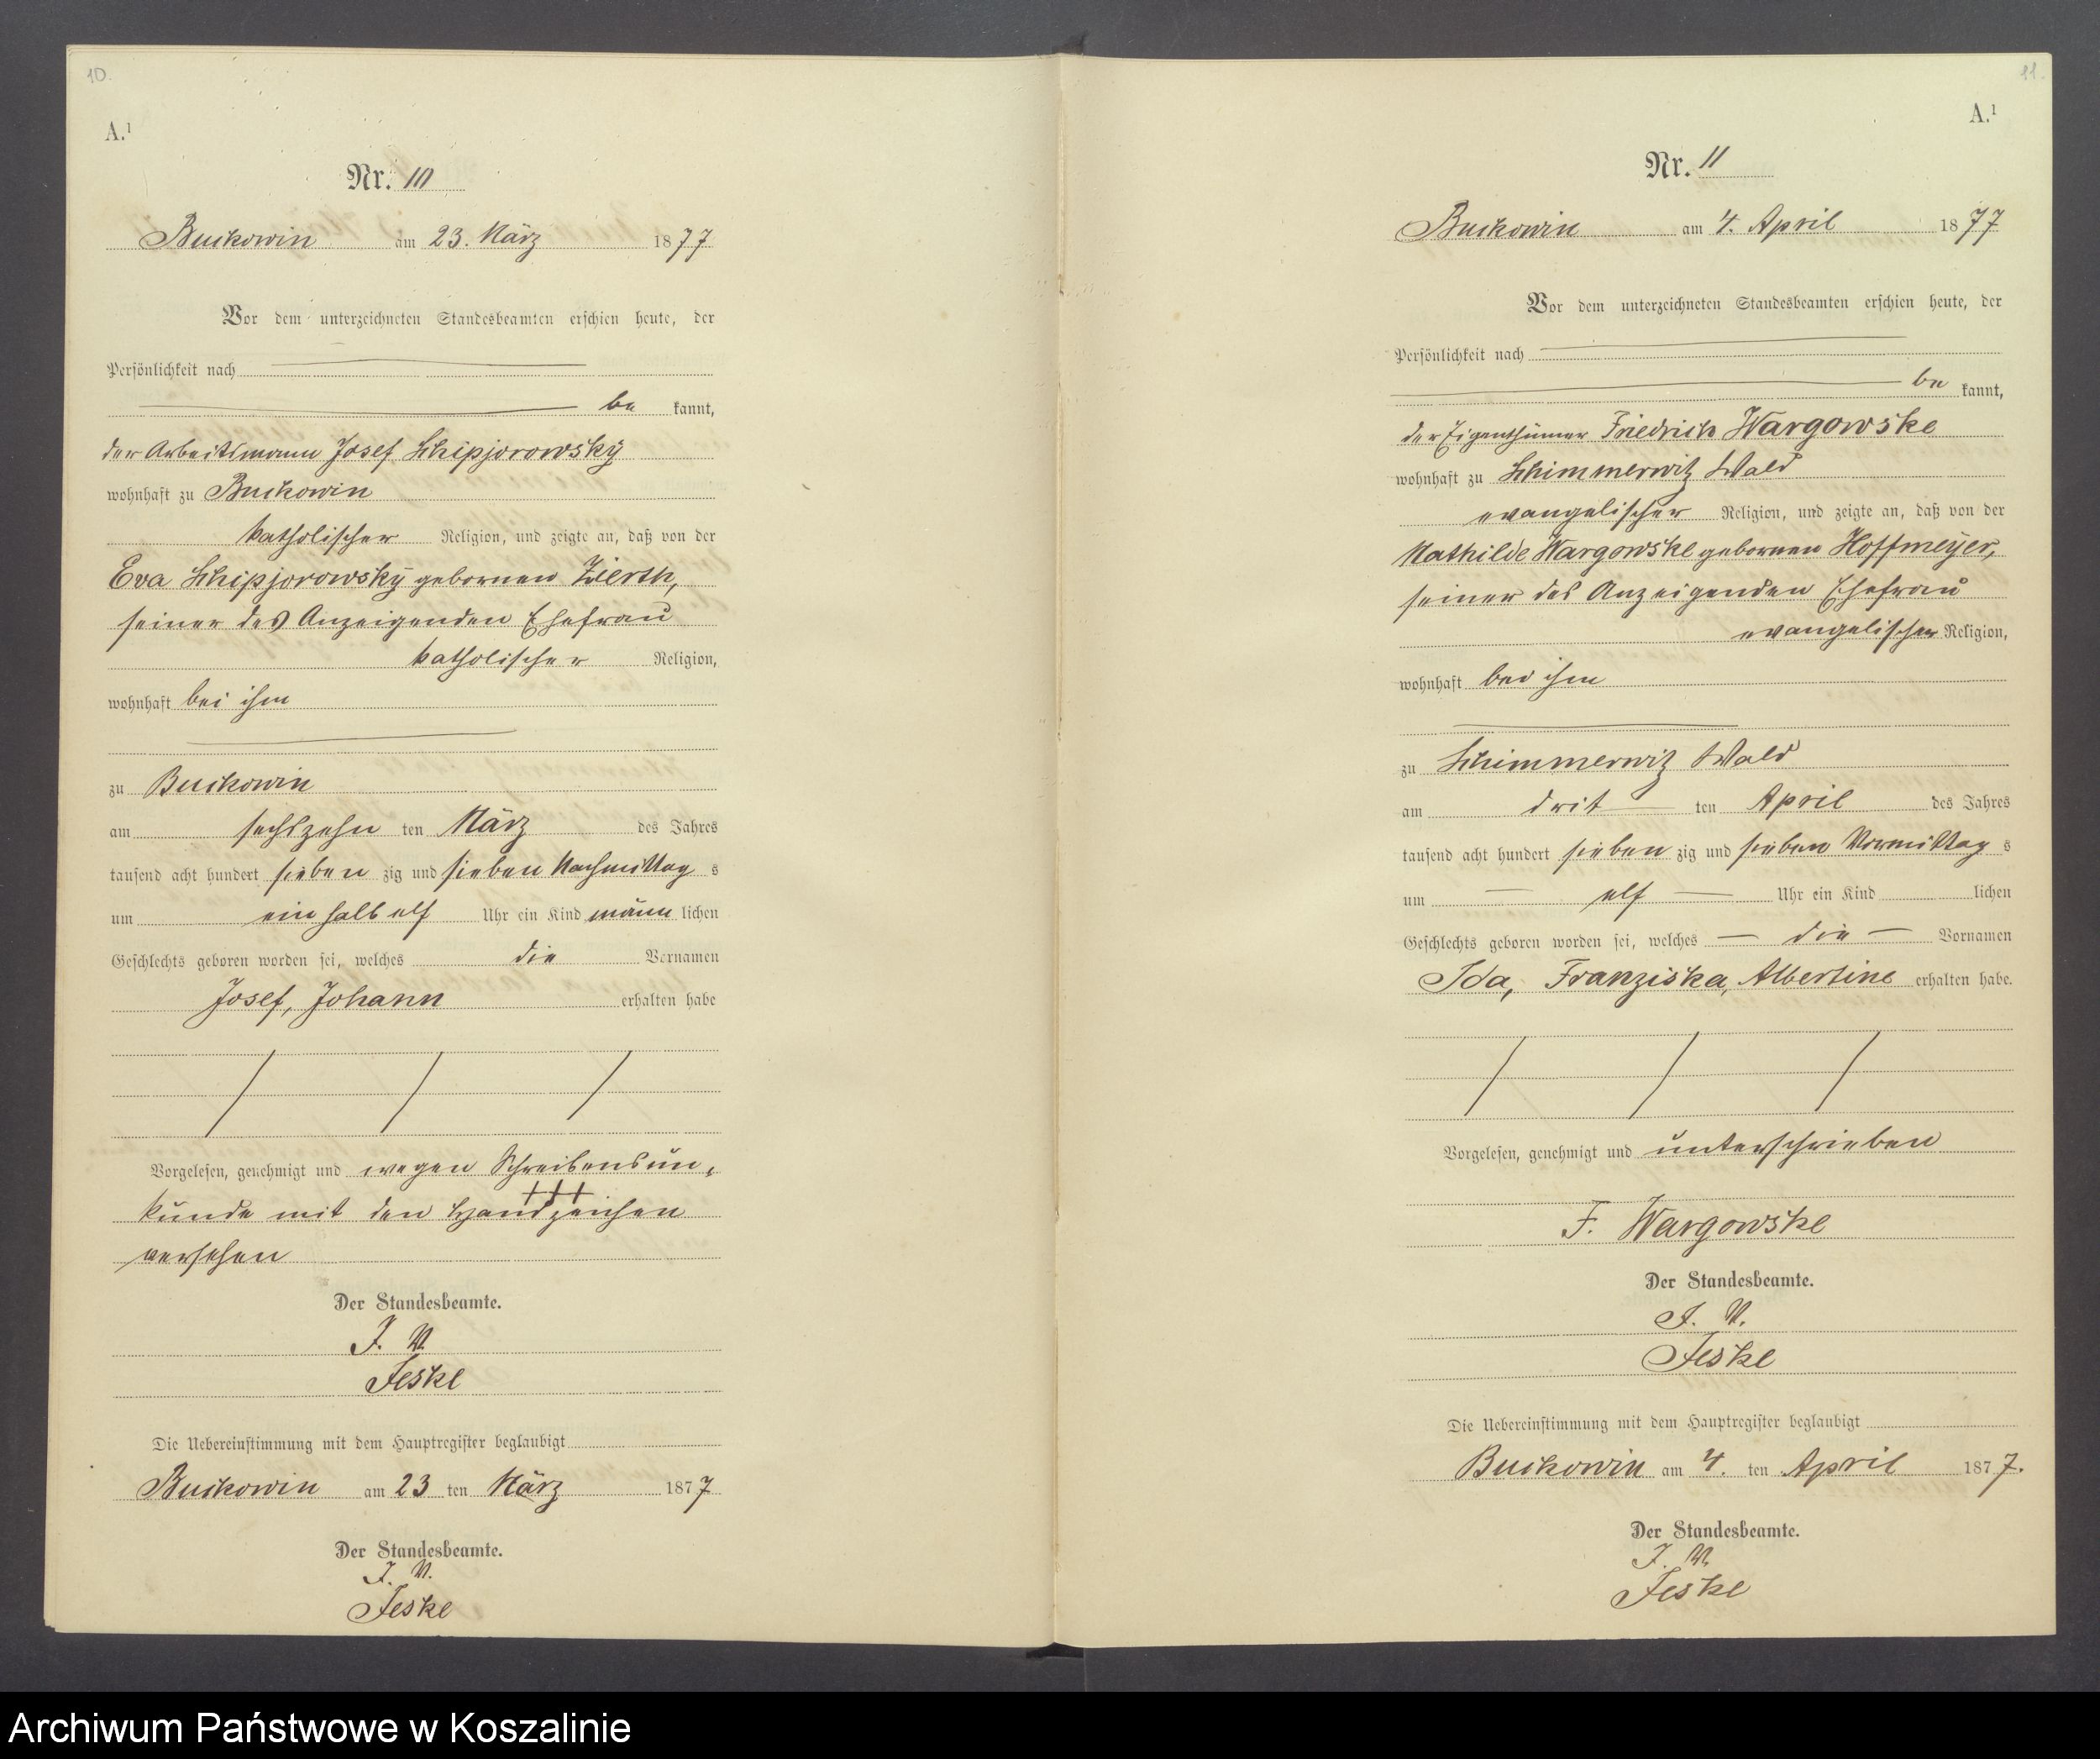 10.
A.¹
Nr. 10
Buckowin am 23. März 1877
Vor dem unterzeichneten Standesbeamten erschien heute, der
Persönlichkeit nach
be kannt,
der Arbeitsmann Josef Schipjorowsky
wohnhaft zu Buckowin
katholischer Religion, und zeigte an, daß von der
Eva Schipjorowsky gebornen Zierth,
seiner des Anzeigenden Ehefrau
katholischer Religion,
wohnhaft bei ihm
zu Buckowin
am sechszehn ten März des Jahres
tausend acht hundert sieben zig und sieben Nachmittag s
um ein halb elf Uhr ein Kind männ lichen
Geschlechts geboren worden sei, welches die Vornamen
Josef, Johann erhalten habe
Vorgelesen, genehmigt und wegen Schreibensun-
+++
kunde mit den Handzeichen
versehen
Der Standesbeamte.
I. V.
Jeske
Die Uebereinstimmung mit dem Hauptregister beglaubigt
Buckowin am 23 ten März 1877
Der Standesbeamte.
I. V.
Jeske
11.
A.¹
Nr. 11
Buckowin am 4. April 1877
Vor dem unterzeichneten Standesbeamten erschien heute, der
Persönlichkeit nach
be kannt,
der Eigenthümer Friedrich Wargowske
wohnhaft zu Schimmerwitz Wald
evangelischer Religion, und zeigte an, daß von der
Mathilde Wargowske gebornen Hoffmeyer,
seiner des Anzeigenden Ehefrau
evangelischer Religion,
wohnhaft bei ihm
zu Schimmerwitz Wald
am drit ten April des Jahres
tausend acht hundert sieben zig und sieben Vormittag s
um elf Uhr ein Kind lichen
Geschlechts geboren worden sei, welches die Vornamen
Ida, Franziska, Albertine erhalten habe.
Vorgelesen, genehmigt und unterschrieben
F. Wargowske
Der Standesbeamte.
I. V.
Jeske
Die Uebereinstimmung mit dem Hauptregister beglaubigt
Buckowin am 4. ten April 1877.
Der Standesbeamte.
I. V.
Jeske
Archiwum Państwowe w Koszalinie